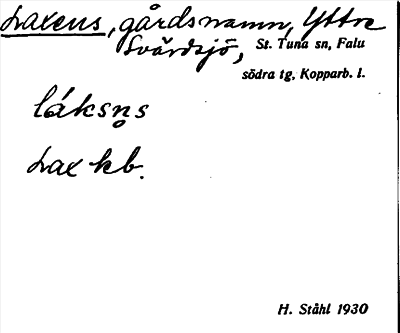 Laxens, gårdsnamn, Yttre
Svärdsjö, St. Tuna sn, Falu
södra tg, Kopparb. l.
láksn̥s
Lax kb.
H. Ståhl 1930